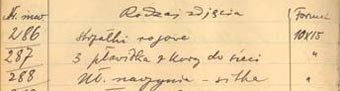 Nr. inw. Rodzaj zdjęcia Format
286 Strzałki rogowe 10x15
287 3 pławidła z kory do sieci "
288 Ul. naczynia - sitka "